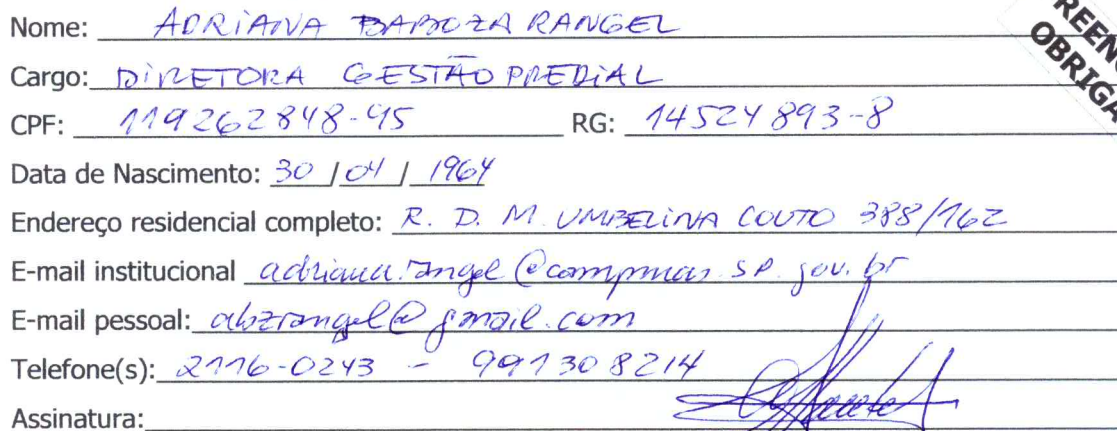 Nome: ADRIANA BABOZA RANGEL
Cargo: DIRETORA GESTÃO PREDIAL
CPF: 119262848-45 RG: 14524893-8
Data de Nascimento: 30 / 04 / 1964
Endereço residencial completo: R. D. M. UMBELINA COUTO 388/162
E-mail institucional adriana.rangel@campinas.sp.gov.br
E-mail pessoal: abzrangel@gmail.com
Telefone(s): 2116-0243 - 991308214
Assinatura: